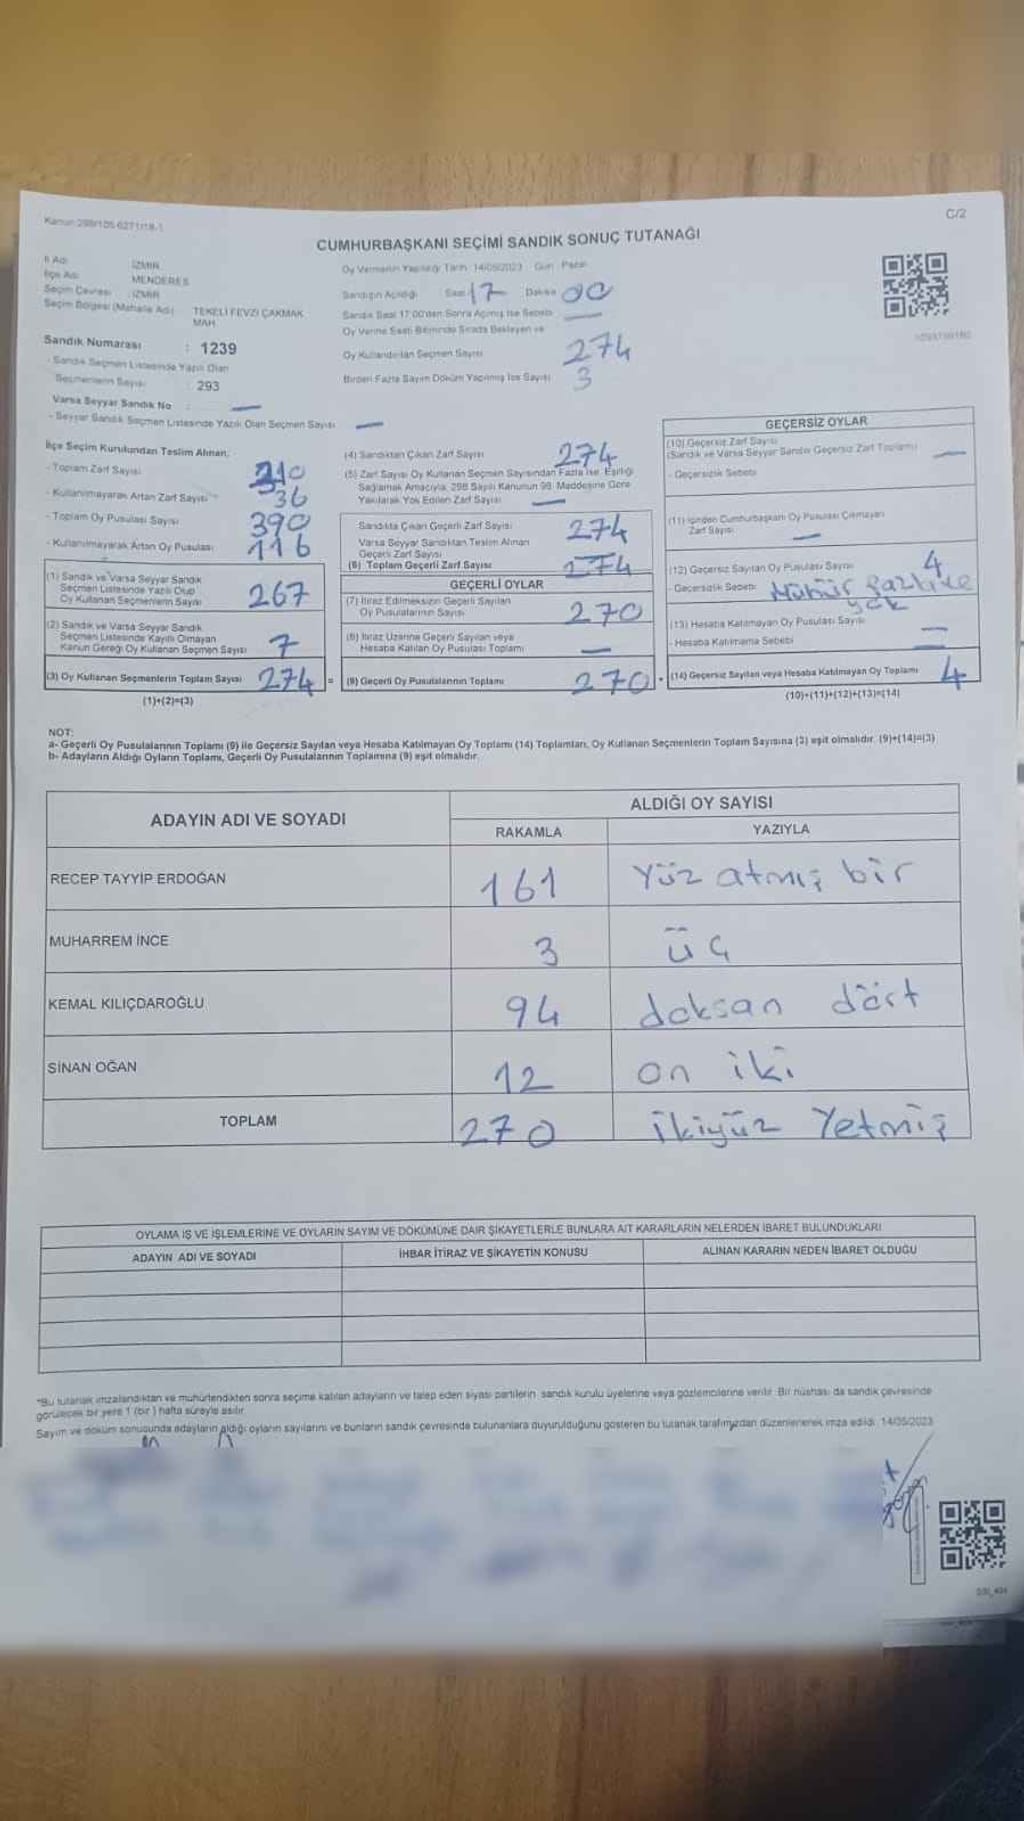 Kanun 298/105-6271/18-1
C/2
CUMHURBAŞKANI SEÇİMİ SANDIK SONUÇ TUTANAĞI
İl Adı İZMİR
İlçe Adı MENDERES
Seçim Çevresi : İZMİR
Seçim Bölgesi (Mahalle Adı) TEKELİ FEVZİ ÇAKMAK MAH.
Sandık Numarası : 1239
- Sandık Seçmen Listesinde Yazılı Olan
Seçmenlerin Sayısı : 293
Varsa Seyyar Sandık No : —
- Seyyar Sandık Seçmen Listesinde Yazılı Olan Seçmen Sayısı —
Oy Vermenin Yapıldığı Tarih : 14/05/2023 Gün : Pazar
Sandığın Açıldığı Saat 17 Dakika 00
Sandık Saat 17:00'den Sonra Açılmış İse Sebebi —
Oy Verme Saati Bitiminde Sırada Bekleyen ve
Oy Kullandırılan Seçmen Sayısı 274
Birden Fazla Sayım Döküm Yapılmış İse Sayısı 3
İlçe Seçim Kurulundan Teslim Alınan;
- Toplam Zarf Sayısı 310
- Kullanılmayarak Artan Zarf Sayısı 36
- Toplam Oy Pusulası Sayısı 390
- Kullanılmayarak Artan Oy Pusulası 116
(1) Sandık ve Varsa Seyyar Sandık
Seçmen Listesinde Yazılı Olup
Oy Kullanan Seçmenlerin Sayısı 267
(2) Sandık ve Varsa Seyyar Sandık
Seçmen Listesinde Kayıtlı Olmayan
Kanun Gereği Oy Kullanan Seçmen Sayısı 7
(3) Oy Kullanan Seçmenlerin Toplam Sayısı 274 =
(1)+(2)=(3)
(4) Sandıktan Çıkan Zarf Sayısı 274
(5) Zarf Sayısı Oy Kullanan Seçmen Sayısından Fazla ise, Eşitliği
Sağlamak Amacıyla, 298 Sayılı Kanunun 98. Maddesine Göre
Yakılarak Yok Edilen Zarf Sayısı —
Sandıkta Çıkan Geçerli Zarf Sayısı 274
Varsa Seyyar Sandıktan Teslim Alınan
Geçerli Zarf Sayısı
(6) Toplam Geçerli Zarf Sayısı 274
GEÇERLİ OYLAR
(7) İtiraz Edilmeksizin Geçerli Sayılan
Oy Pusulalarının Sayısı 270
(8) İtiraz Üzerine Geçerli Sayılan veya
Hesaba Katılan Oy Pusulası Toplamı —
(9) Geçerli Oy Pusulalarının Toplamı 270 +
GEÇERSİZ OYLAR
(10) Geçersiz Zarf Sayısı
(Sandık ve Varsa Seyyar Sandık Geçersiz Zarf Toplamı) —
- Geçersizlik Sebebi
(11) İçinden Cumhurbaşkanı Oy Pusulası Çıkmayan
Zarf Sayısı —
(12) Geçersiz Sayılan Oy Pusulası Sayısı 4
- Geçersizlik Sebebi Mühür fazla ve
yok
(13) Hesaba Katılmayan Oy Pusulası Sayısı —
- Hesaba Katılmama Sebebi —
(14) Geçersiz Sayılan veya Hesaba Katılmayan Oy Toplamı 4
(10)+(11)+(12)+(13)=(14)
NOT:
a- Geçerli Oy Pusulalarının Toplamı (9) ile Geçersiz Sayılan veya Hesaba Katılmayan Oy Toplamı (14) Toplamları, Oy Kullanan Seçmenlerin Toplam Sayısına (3) eşit olmalıdır. (9)+(14)=(3)
b- Adayların Aldığı Oyların Toplamı, Geçerli Oy Pusulalarının Toplamına (9) eşit olmalıdır.
ADAYIN ADI VE SOYADI ALDIĞI OY SAYISI
RAKAMLA YAZIYLA
RECEP TAYYİP ERDOĞAN 161 Yüz atmış bir
MUHARREM İNCE 3 üç
KEMAL KILIÇDAROĞLU 94 doksan dört
SİNAN OĞAN 12 on iki
TOPLAM 270 ikiyüz Yetmiş
OYLAMA İŞ VE İŞLEMLERİNE VE OYLARIN SAYIM VE DÖKÜMÜNE DAİR ŞİKAYETLERLE BUNLARA AİT KARARLARIN NELERDEN İBARET BULUNDUKLARI
ADAYIN ADI VE SOYADI İHBAR İTİRAZ VE ŞİKAYETİN KONUSU ALINAN KARARIN NEDEN İBARET OLDUĞU
*Bu tutanak imzalandıktan ve mühürlendikten sonra seçime katılan adayların ve talep eden siyasi partilerin, sandık kurulu üyelerine veya gözlemcilerine verilir. Bir nüshası da sandık çevresinde
görülecek bir yere 1 (bir) hafta süreyle asılır.
Sayım ve döküm sonucunda adayların aldığı oyların sayılarını ve bunların sandık çevresinde bulunanlara duyurulduğunu gösteren bu tutanak tarafımızdan düzenlenerek imza edildi. 14/05/2023